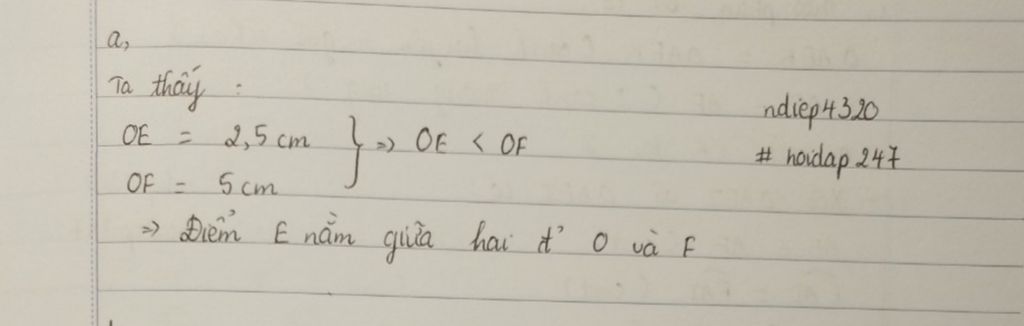 a,
Ta thấy :
OE = 2,5 cm } => OE < OF
OF = 5 cm
=> Điểm E nằm giữa hai đ' O và F
ndiep4320
# hoidap 247